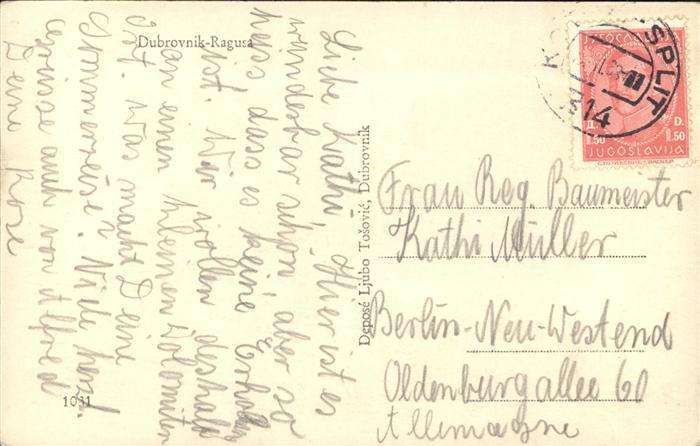 Dubrovnik-Ragusa
Liebe Kathi, Hier ist es
wunderbar schön, aber so
heiss dass es keine Erholung
ist. Wir wollen deshalb
an einen kleinen Dolomiten
Ort. Was macht Deine
Sommerreise? Viele herzl.
Grüsse auch von Alfred
Deine Rose
1031
Deposé Ljubo Tošović, Dubrovnik
SPLIT
314
JUGOSLAVIJA
1.50
D.
1.50
Frau Reg. Baumeister
Kathi Müller
Berlin-Neu-Westend
Oldenburgallee 60
Allemagne